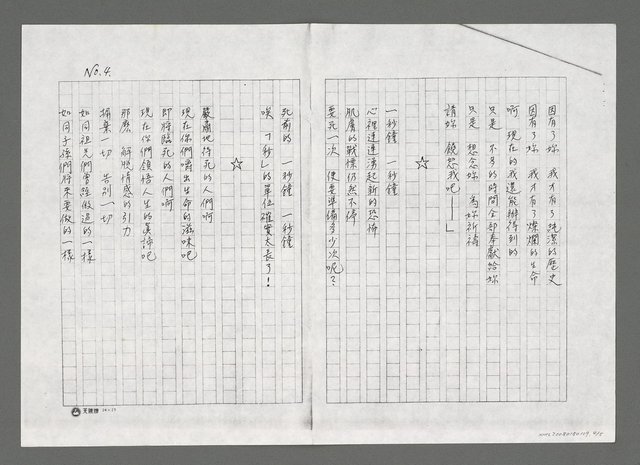 No. 4.
因有了妳 我才有了純潔的歷史
因有了妳 我才有了燦爛的生命
啊 現在的我還能辦得到的
只是 不多的時間全部奉獻給妳
只是 想念妳 為妳祈禱
請妳 饒恕我吧——」
☆
一秒鐘 一秒鐘
心裡連湧起新的恐怖
肌膚的戰慄仍然不停
要死一次 便要準備多少次呢？
死前的 一秒鐘 一秒鐘
唉「一秒」的單位確實太長了！
☆
嚴肅地待死的人們啊
現在你們嚐出生命的滋味吧
即將臨死的人們啊
現在你們領悟人生的真諦吧
那麼 解脫情感的引力
捐棄一切 告別一切
如同祖先們曾經做過的一樣
如同子孫們將來要做的一樣
天鵝牌 24×25